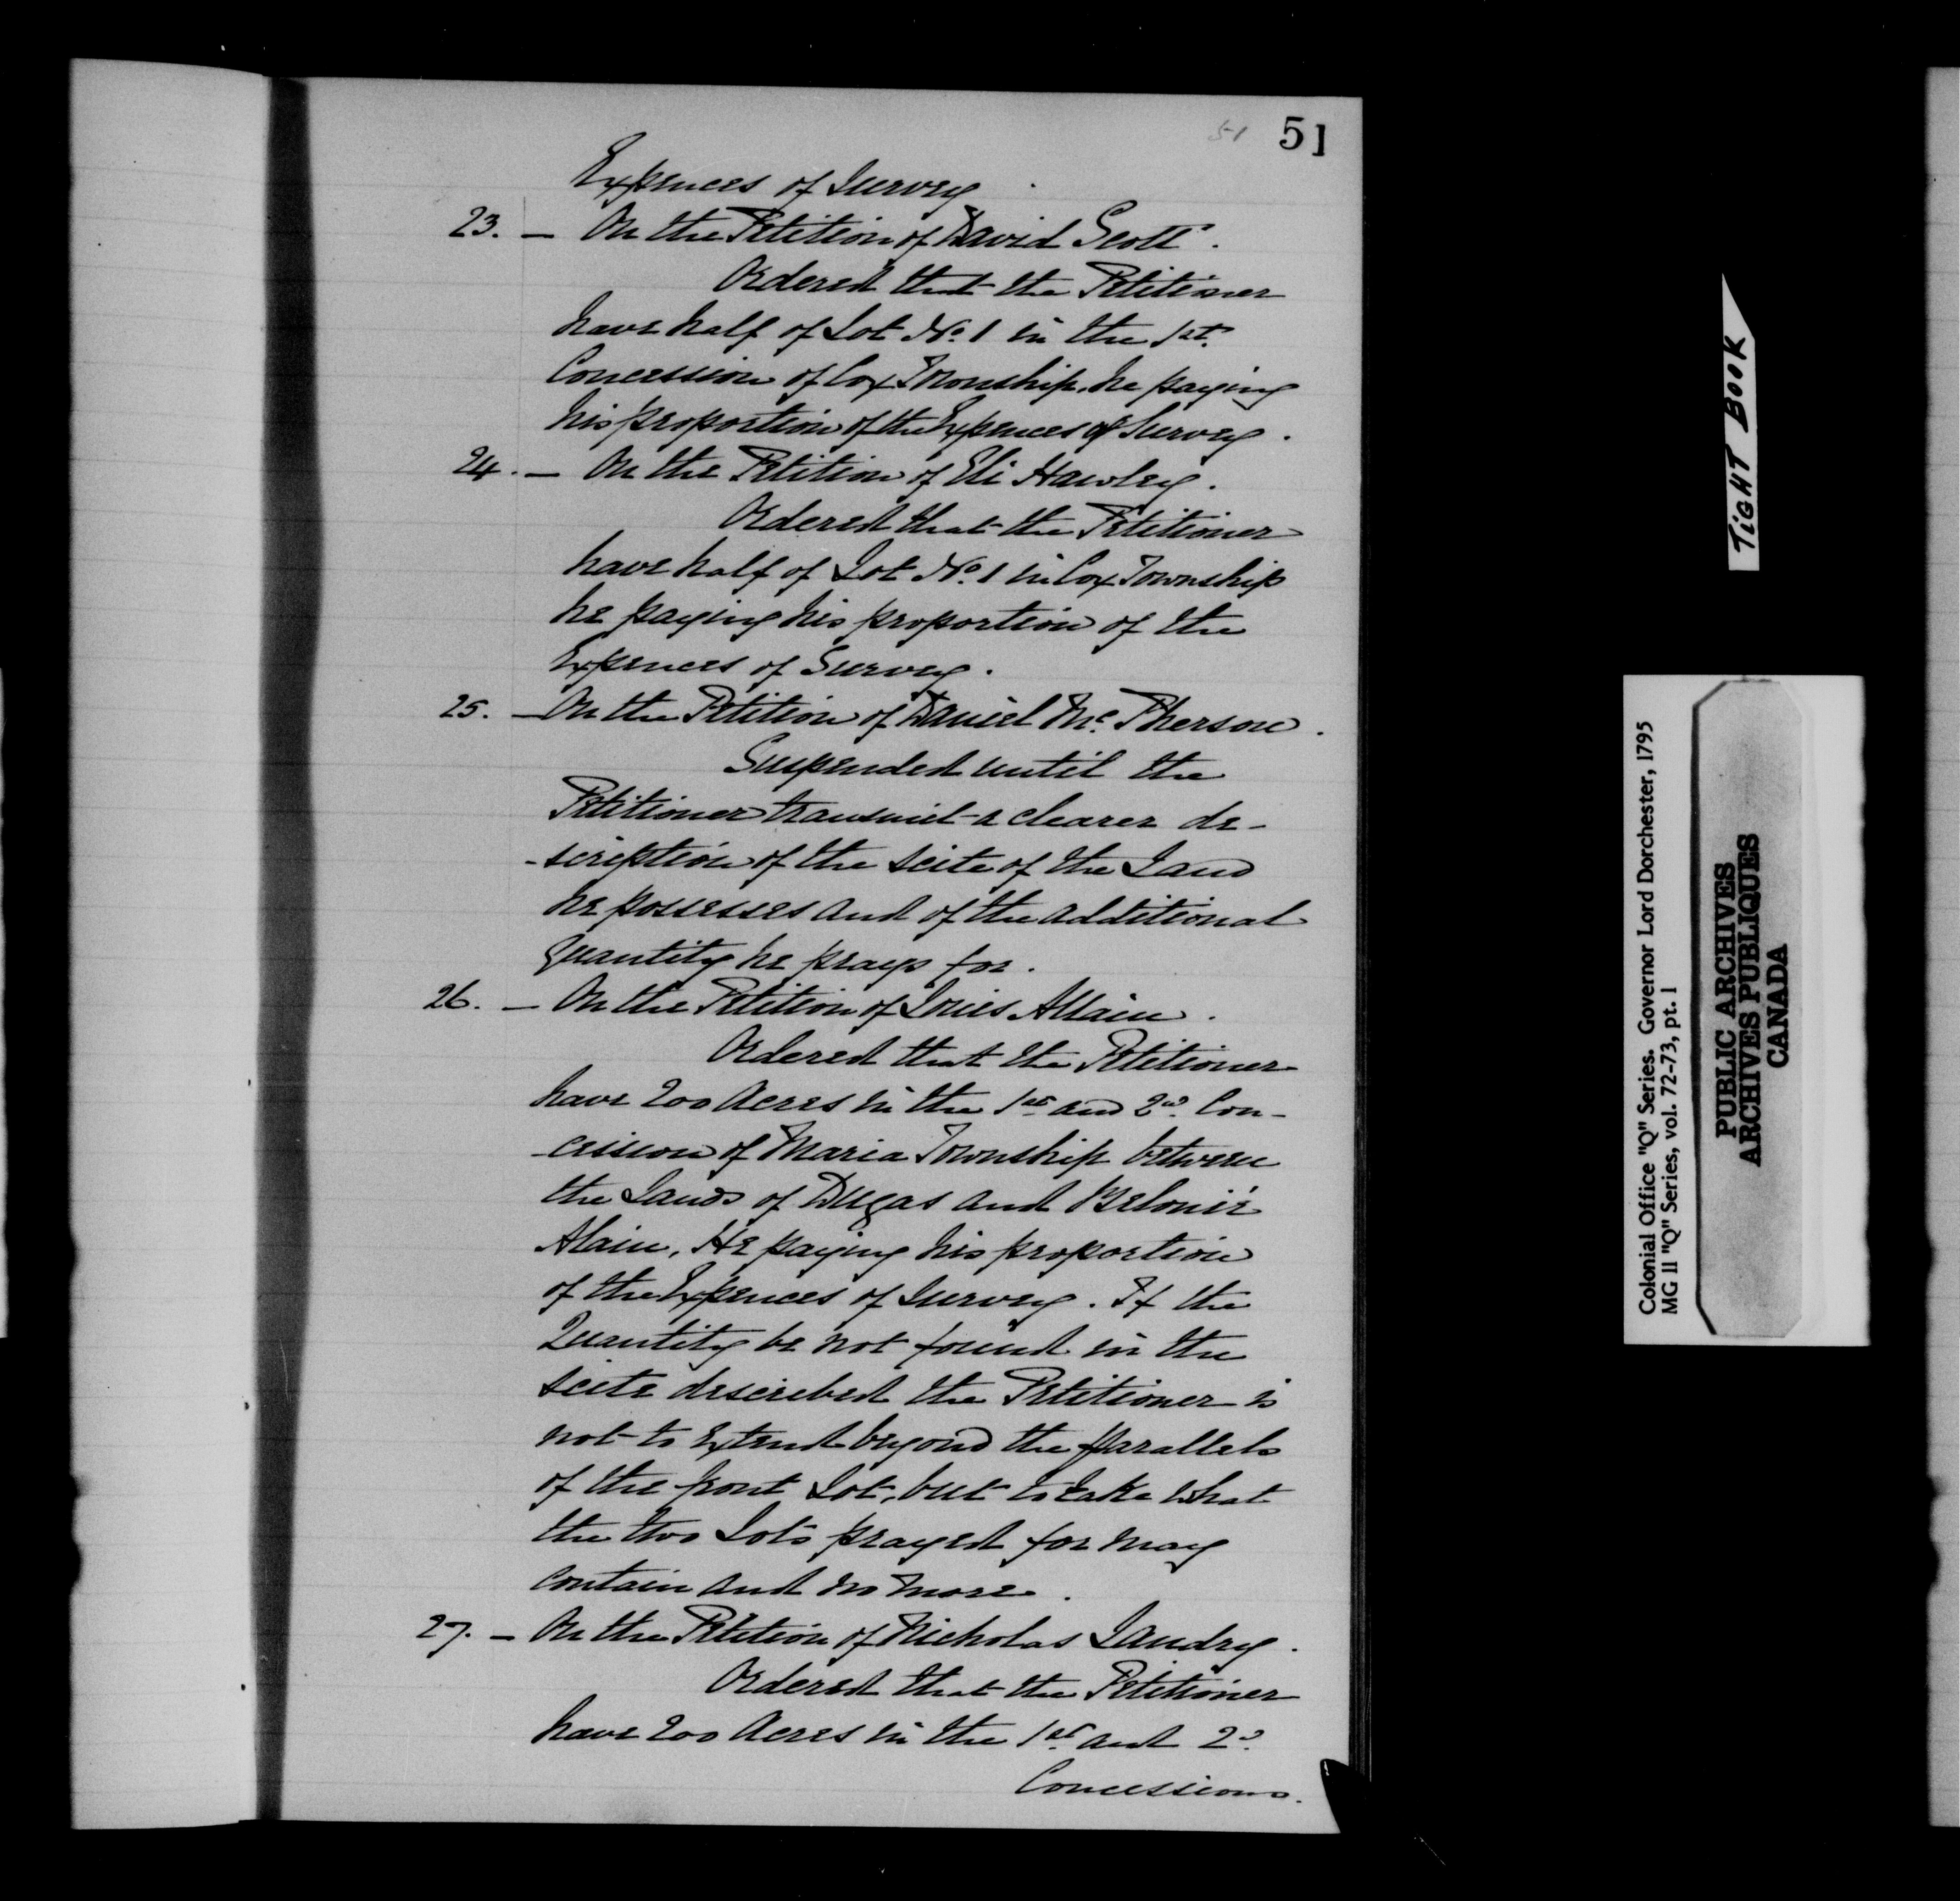 51 51
Expences of Survey
23. — On the Petition of David Scott.
Ordered that the Petitioner
have half of Lot No. 1 in the 1st.
Concession of Cox Township, he paying
his proportion of the Expences of Survey.
24. — On the Petition of Eli Hawley.
Ordered that the Petitioner
have half of Lot No. 1 in Cox Township
he paying his proportion of the
Expences of Survey.
25. — On the Petition of Daniel Mc. Pherson.
Suspended until the
Petitioner transmit a clearer de-
-scription of the scite of the Land
he possesses and of the additional
quantity he prays for.
26. — On the Petition of Louis Allain.
Ordered that the Petitioner
have 200 Acres in the 1st and 2d. Con-
-cession of Maria Township between
the Lands of Dugas and Belonié
Alain, He paying his proportion
of the Expences of Survey. If the
Quantity be not found in the
scite described the Petitioner is
not to extend beyond the parallels
of the front Lot, but to take what
the two Lots prayed for may
contain and no more.
27. — On the Petition of Nicholas Landry.
Ordered that the Petitioner
have 200 Acres in the 1st. and 2d.
Concessions.
TIGHT BOOK
Colonial Office "Q" Series. Governor Lord Dorchester, 1795
MG 11 "Q" Series, vol. 72-73, pt. 1
PUBLIC ARCHIVES
ARCHIVES PUBLIQUES
CANADA